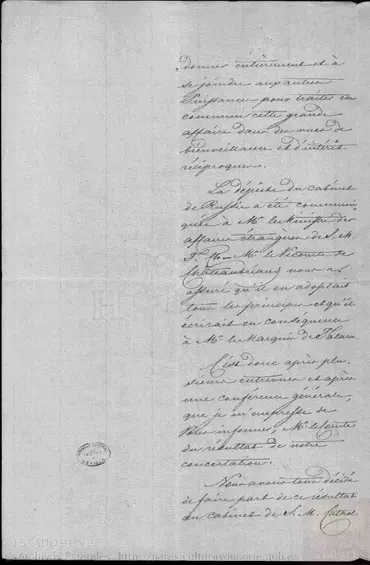 donner entièrement et à
se joindre aux autres
Puissances pour traiter en
commun cette grande
affaire dans des vues de
bienveillance et d'intérêt
réciproques.
La dépêche du cabinet
de Russie a été communi-
quée à Mr. le Ministre des
affaires étrangères de S. M.
Mr. le Vicomte de
Châteaubriand nous a
assuré qu'il en adoptait
tous les principes et qu'il
écrirait en conséquence
à Mr. le Marquis de Talaru.
C'est donc après plu-
sieurs entrevues et après
une conférence générale,
que je m'empresse de
Vous informer, Mr. le Comte
du résultat de notre
concertation.
Nous avons tous décidé
de faire part de ce résultat
au cabinet de S. M. Cathol.
ESTADO,91,N.7